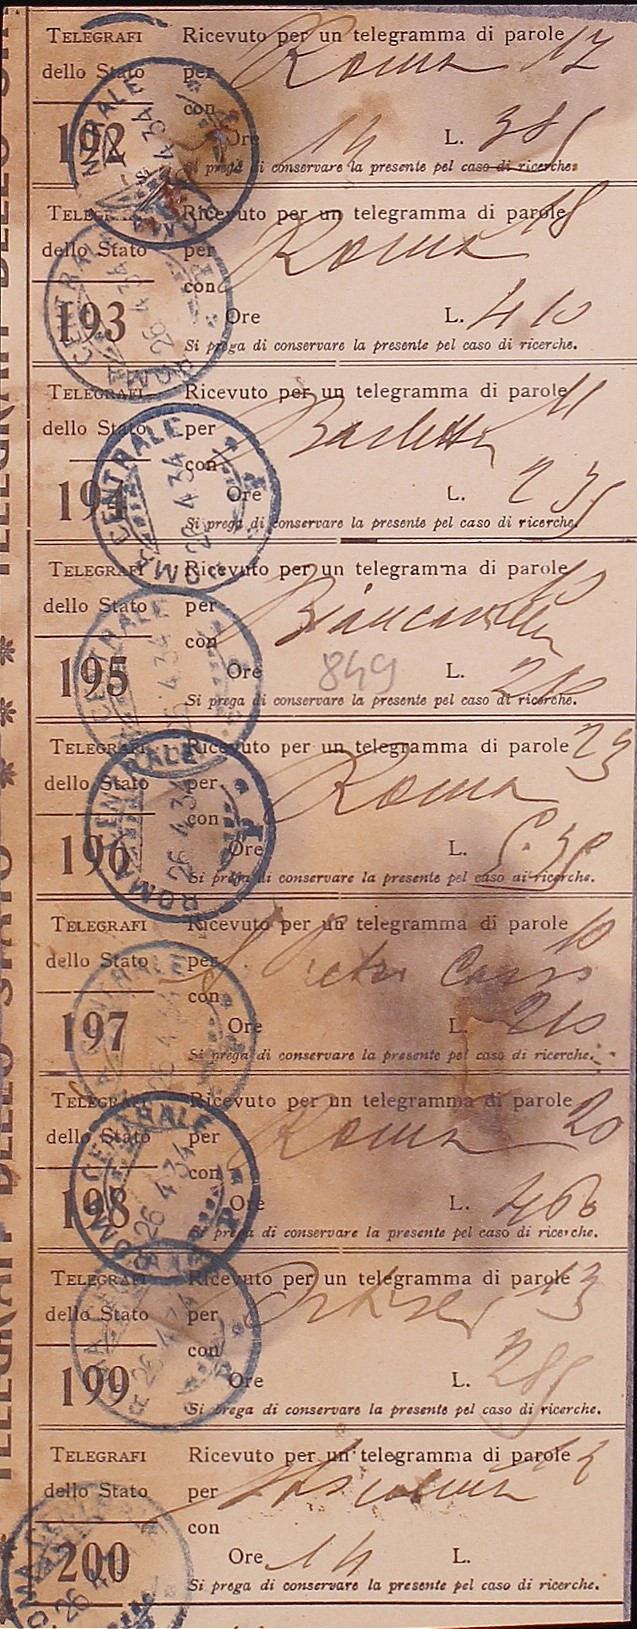 TELEGRAFI Ricevuto per un telegramma di parole 17
dello Stato per Roma
con
192 Ore 14 L. 385
Si prega di conservare la presente pel caso di ricerche.
TELEGRAFI Ricevuto per un telegramma di parole 18
dello Stato per Roma
con
193 Ore L. 4 10
Si prega di conservare la presente pel caso di ricerche.
TELEGRAFI Ricevuto per un telegramma di parole 11
dello Stato per Barletta
con
194 Ore L. 2 35
Si prega di conservare la presente pel caso di ricerche.
TELEGRAFI Ricevuto per un telegramma di parole 10
dello Stato per Biancavilla
con
195 Ore 849 L. 210
Si prega di conservare la presente pel caso di ricerche.
TELEGRAFI Ricevuto per un telegramma di parole 23
dello Stato per Roma
con
196 Ore L.
Si prega di conservare la presente pel caso di ricerche.
TELEGRAFI Ricevuto per un telegramma di parole 10
dello Stato per
con
197 Ore L. 210
Si prega di conservare la presente pel caso di ricerche.
TELEGRAFI Ricevuto per un telegramma di parole 20
dello Stato per Roma
con
198 Ore L. 460
Si prega di conservare la presente pel caso di ricerche.
TELEGRAFI Ricevuto per un telegramma di parole 13
dello Stato per
con
199 Ore L. 285
Si prega di conservare la presente pel caso di ricerche.
TELEGRAFI Ricevuto per un telegramma di parole
dello Stato per
con
200 Ore 14 L.
Si prega di conservare la presente pel caso di ricerche.
ROMA CENTRALE
26 4 34